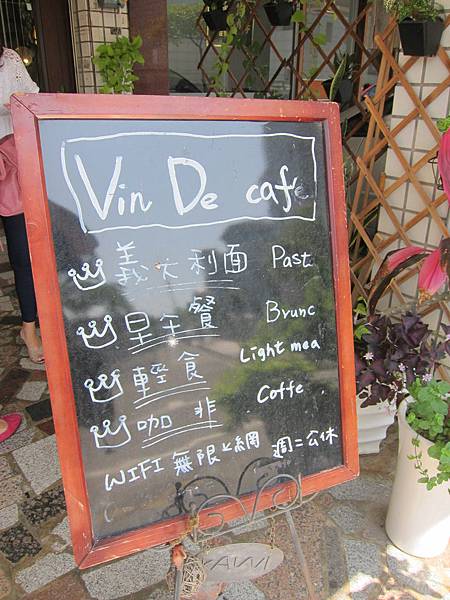 Vin De cafe
義大利面 Past
早午餐 Brunc
輕食 Light mea
咖非 Coffe
WIFI 無限上網 週二公休